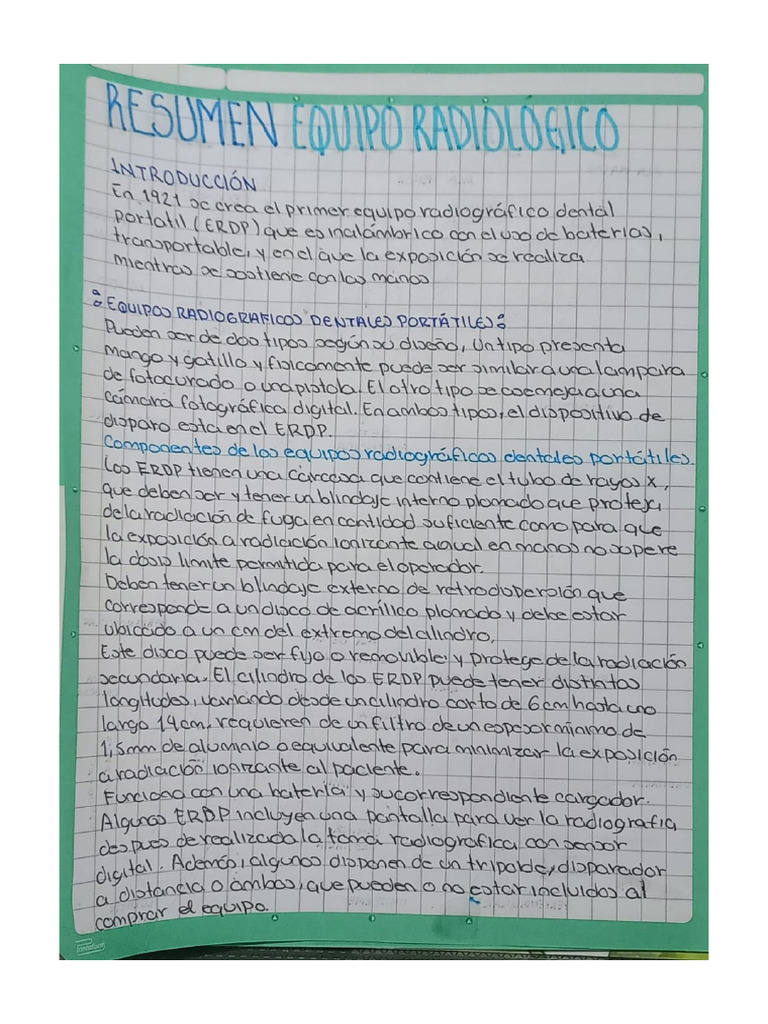 RESUMEN EQUIPO RADIOLÓGICO
INTRODUCCIÓN
En 1921 se crea el primer equipo radiográfico dental
portatil (ERDP) que es inalámbrico con el uso de baterias,
transportable, y en el que la exposición se realiza
mientras se sostiene con las manos
° EQUIPOS RADIOGRAFICOS DENTALES PORTÁTILES °
Pueden ser de dos tipos según su diseño, Un tipo presenta
mango y gatillo y fisicamente puede ser similar a una lampara
de fotocurado o una pistola. El otro tipo se asemeja a una
cámara fotográfica digital. En ambos tipos, el dispositivo de
disparo esta en el ERDP.
Componentes de los equipos radiográficos dentales portátiles.
Los ERDP tienen una carcasa que contiene el tubo de rayos x,
que deben ser y tener un blindaje interno plomado que proteja
de la radiación de fuga en cantidad suficiente como para que
la exposición a radiación ionizante anual en manos no supere
la dosis limite permitida para el operador.
Deben tener un blindaje externo de retrodispersión que
corresponde a un disco de acrílico plomado y debe estar
ubicado a un cm del extremo del cilindro.
Este disco puede ser fijo o removible, y protege de la radiación
secundaria. El cilindro de los ERDP puede tener distintas
longitudes, variando desde un cilindro corto de 6cm hasta uno
largo 14cm, requieren de un filtro de un espesor mínimo de
1,5mm de aluminio o equivalente para minimizar la exposición
a radiación ionizante al paciente.
Funciona con una batería y su correspondiente cargador.
Algunos ERDP incluyen una pantalla para ver la radiografia
despues de realizada la toma radiografica con sensor
digital. Además, algunos disponen de un tripoide, disparador
a distancia o ambos, que pueden o no estar incluidos al
comprar el equipo.